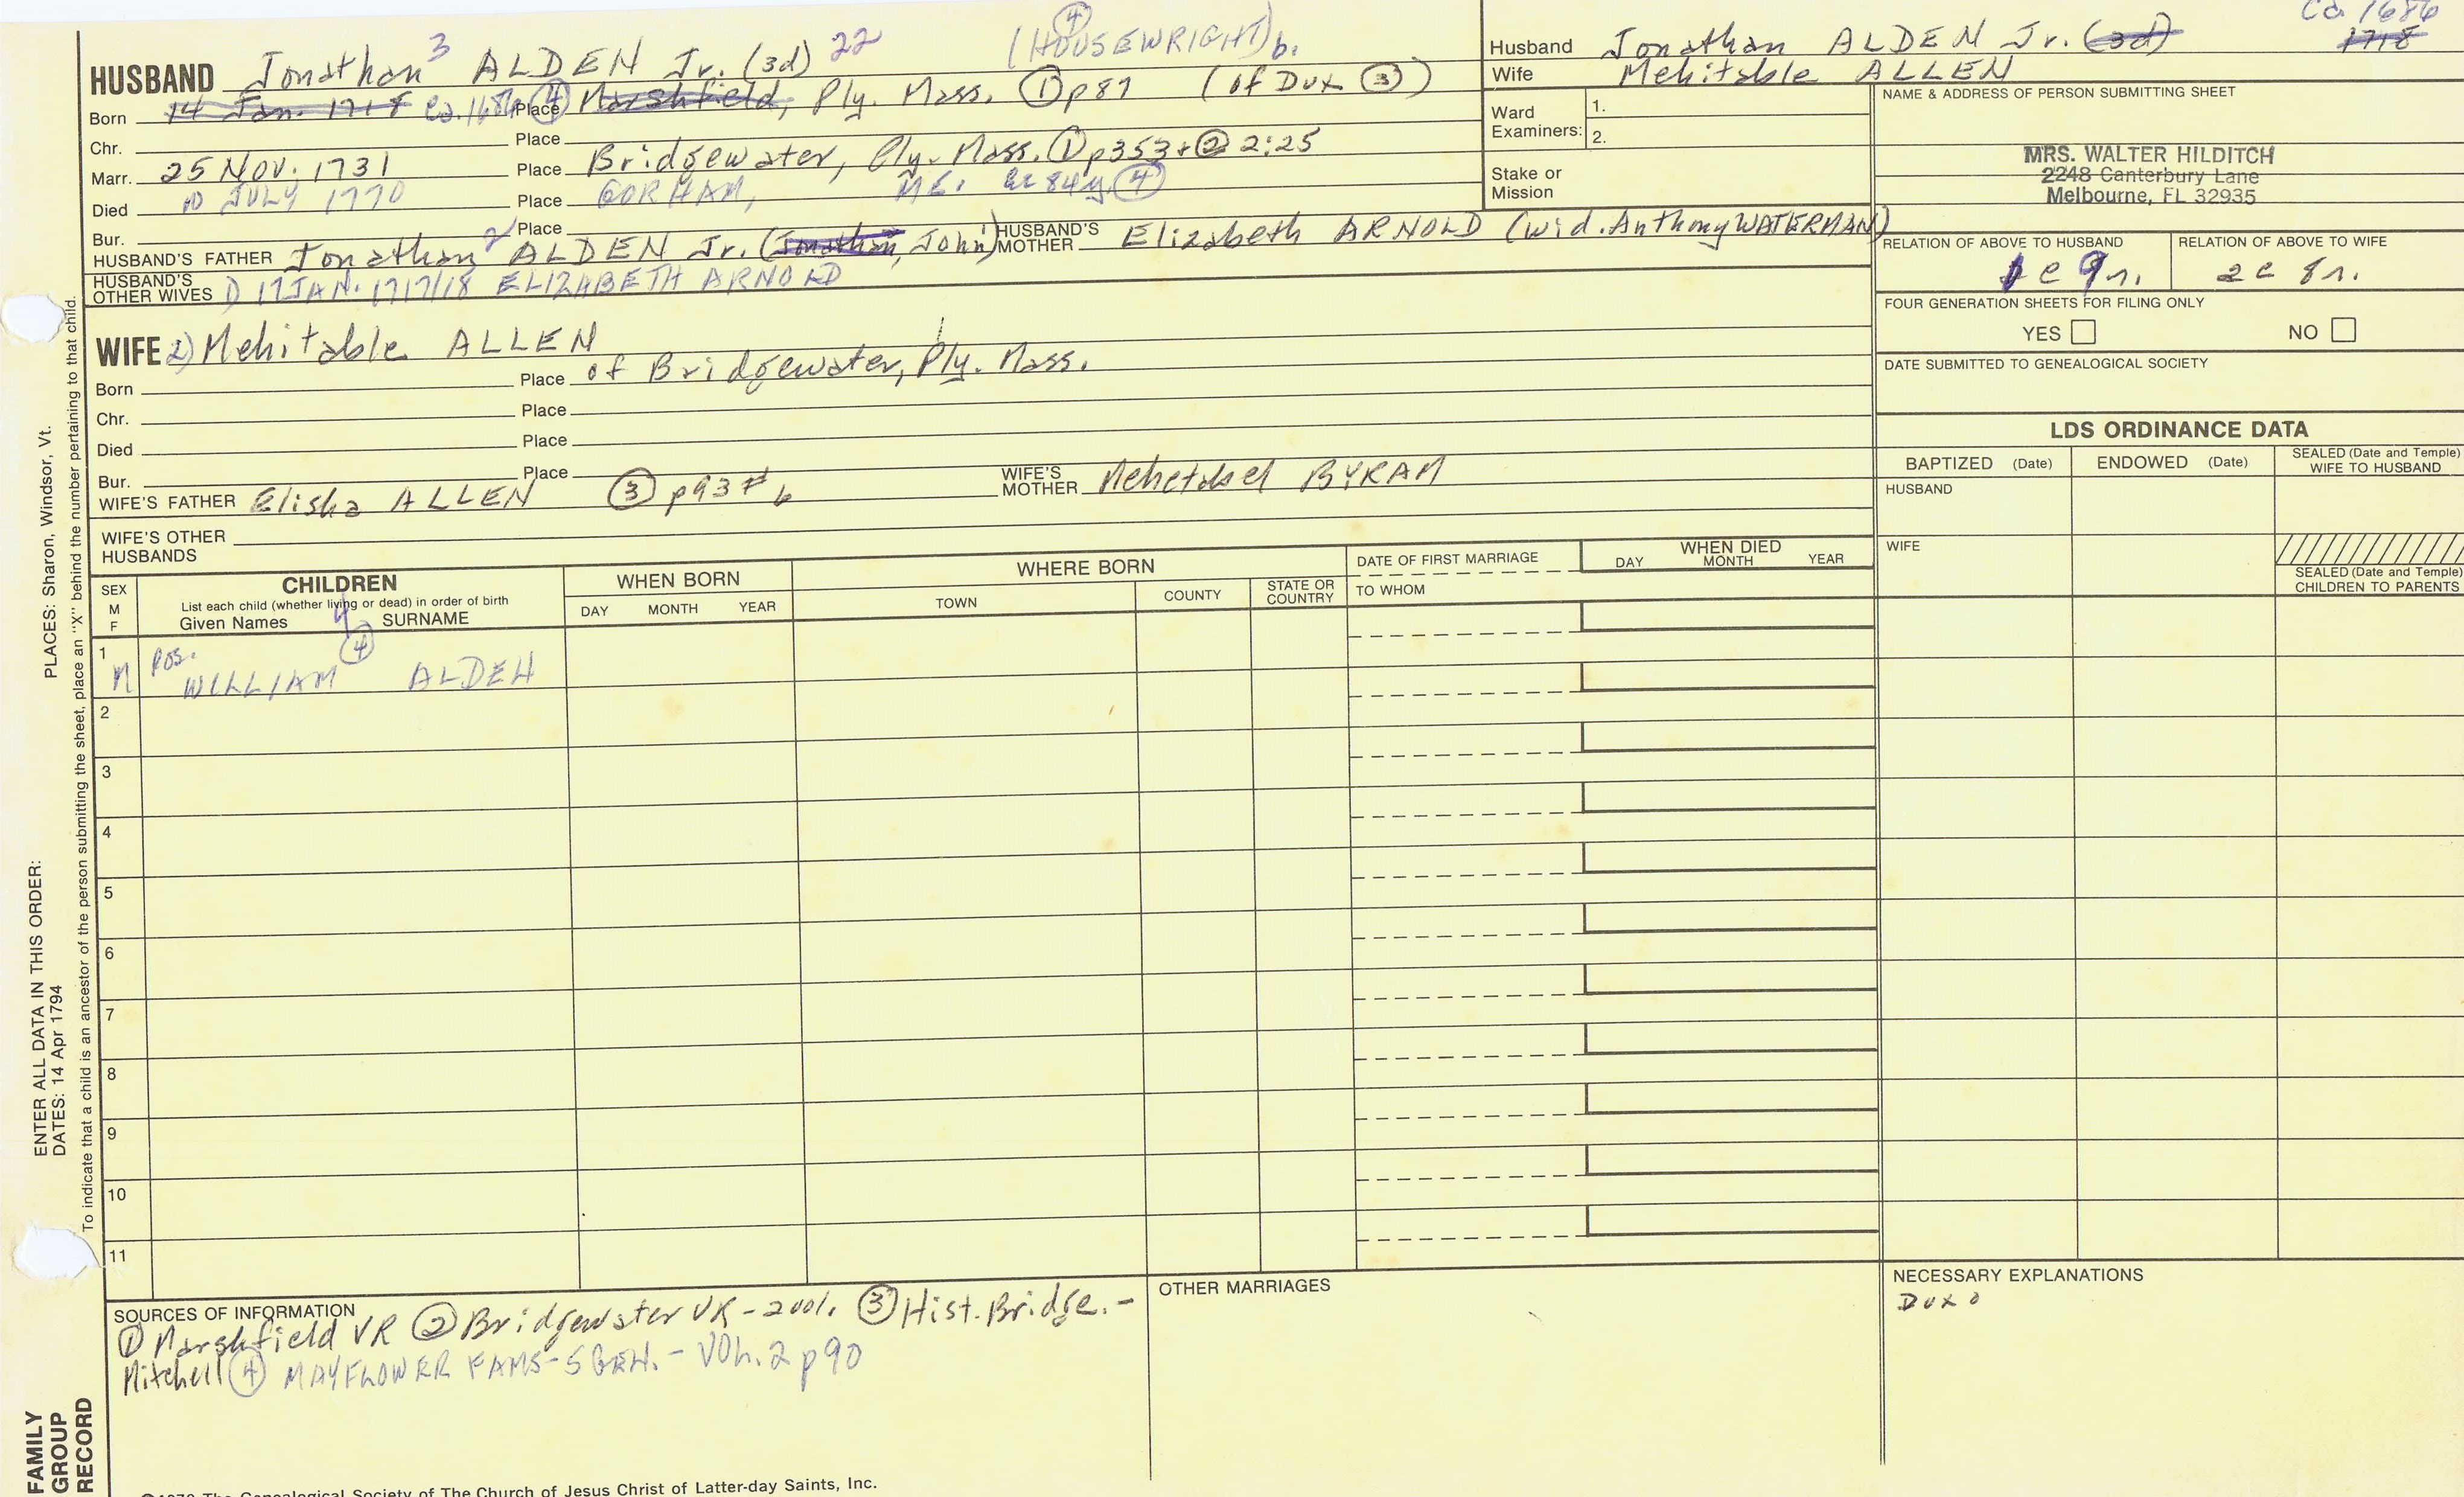 HUSBAND Jonathan 3 ALDEN Jr. (3d) 22 (HOUSEWRIGHT) ④ b.
Born 14 Jan. 1718 ca. 1686 ④ Place Marshfield, Ply. Mass. ① p87 (of Dux ③)
Chr. Place
Marr. 25 Nov. 1731 Place Bridgewater, Ply. Mass. ① p353 + ② 2:25
Died 10 JULY 1770 Place GORHAM, ME. ae 84y ④
Bur. Place
HUSBAND'S FATHER Jonathan 2 ALDEN Jr. (Jonathan, John 1) HUSBAND'S MOTHER Elizabeth ARNOLD (wid. Anthony WATERMAN)
HUSBAND'S OTHER WIVES 1) 17 JAN. 1717/18 ELIZABETH ARNOLD
WIFE 2) Mehitable ALLEN
Born Place of Bridgewater, Ply. Mass.
Chr. Place
Died Place
Bur. Place
WIFE'S FATHER Elisha ALLEN ③ p93 #6 WIFE'S MOTHER Mehetabel BYRAM
WIFE'S OTHER HUSBANDS
Husband Jonathan ALDEN Jr. (3d) Ca. 1686 1718
Wife Mehitable ALLEN
Ward Examiners: 1.
2.
Stake or Mission
NAME & ADDRESS OF PERSON SUBMITTING SHEET
MRS. WALTER HILDITCH
2248 Canterbury Lane
Melbourne, FL 32935
RELATION OF ABOVE TO HUSBAND RELATION OF ABOVE TO WIFE
1c 9r. 2c 8r.
FOUR GENERATION SHEETS FOR FILING ONLY
YES NO
DATE SUBMITTED TO GENEALOGICAL SOCIETY
LDS ORDINANCE DATA
BAPTIZED (Date) ENDOWED (Date) SEALED (Date and Temple) WIFE TO HUSBAND
HUSBAND
WIFE
SEALED (Date and Temple) CHILDREN TO PARENTS
SEX M F CHILDREN WHEN BORN WHERE BORN DATE OF FIRST MARRIAGE WHEN DIED
List each child (whether living or dead) in order of birth
Given Names SURNAME DAY MONTH YEAR TOWN COUNTY STATE OR COUNTRY TO WHOM DAY MONTH YEAR
1 M pos. WILLIAM 4 ④ ALDEN
2
3
4
5
6
7
8
9
10
11
SOURCES OF INFORMATION
① Marshfield VR ② Bridgewater VR - 2 vol. ③ Hist. Bridge. -
Mitchell ④ MAYFLOWER FAMS - 5 GEN. - VOL. 2 p90
OTHER MARRIAGES
NECESSARY EXPLANATIONS
Dux
ENTER ALL DATA IN THIS ORDER:
DATES: 14 Apr 1794 PLACES: Sharon, Windsor, Vt.
To indicate that a child is an ancestor of the person submitting the sheet, place an "X" behind the number pertaining to that child.
FAMILY
GROUP
RECORD
The Genealogical Society of The Church of Jesus Christ of Latter-day Saints, Inc.